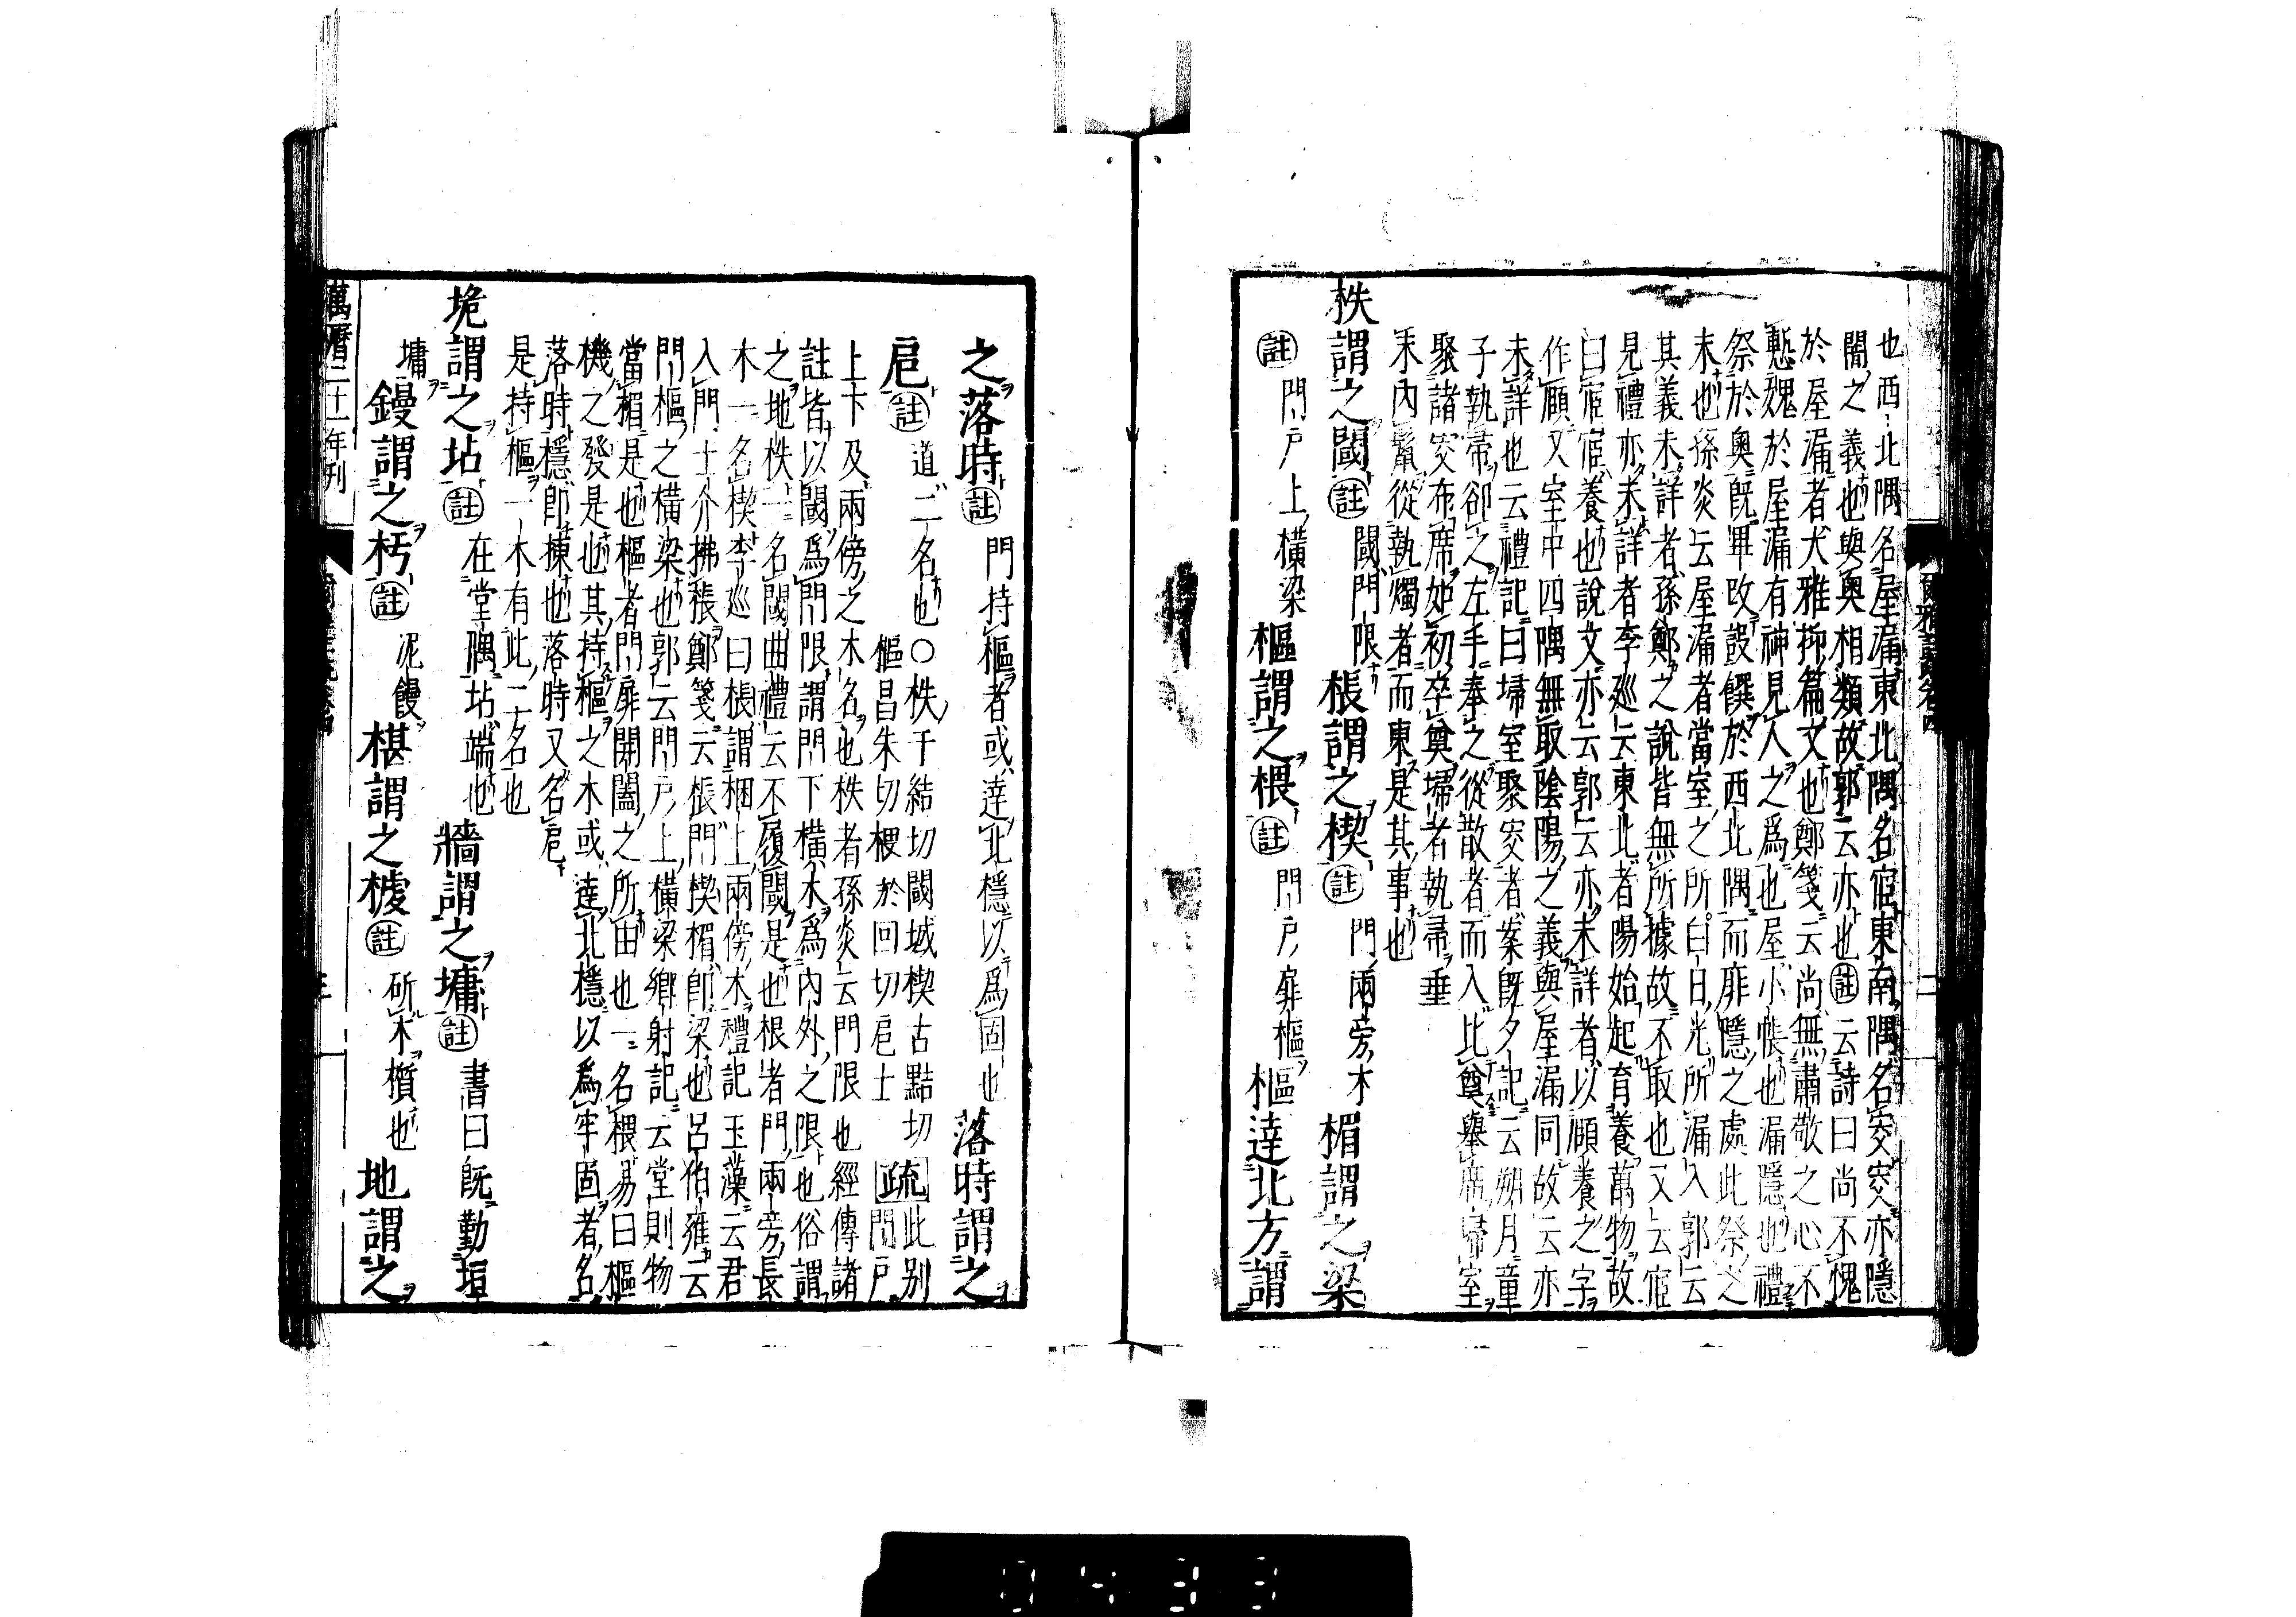 也西北隅名屋漏東北隅名宧東南隅名窔窔亦隱
闇之義也與奧相類故郭云亦也註云詩曰尚不愧
於屋漏者大雅抑篇文也鄭箋云尚無肅敬之心不
慙媿於屋漏有神見人之爲也屋小帳也漏隱也禮
祭於奧既畢改設饌於西北隅而厞隱之處此祭之
末也孫炎云屋漏者當室之所白日光所漏入郭云
其義未詳者孫鄭之說皆無所據故不取也又云宧
見禮亦未詳者李巡云東北者陽始起育養萬物故
曰宧宧養也說文亦云郭云亦未詳者以頤養之字
作頤又室中四隅無取陰陽之義與屋漏同故云亦
未詳也云禮記曰埽室聚窔者案既夕記云朔月童
子執帚卻之左手奉之從散者而入比奠舉席埽室
聚諸窔布席如初卒奠埽者執帚垂
末內鬣從執燭者而東是其事也
柣謂之閾註閾門限棖謂之楔註門兩旁木楣謂之梁
註門戶上橫梁樞謂之椳註門戶扉樞樞達北方謂
爾雅註疏卷四
二
之落時註門持樞者或達北檼以爲固也落時謂之
戹註道二名也○柣千結切閾域楔古黠切
樞昌朱切椳於回切戹士疏此別門戶
上下及兩傍之木名也柣者孫炎云門限也經傳諸
註皆以閾爲門限謂門下橫木爲內外之限也俗謂
之地柣一名閾曲禮云不履閾是也棖者門兩旁長
木一名楔李巡曰棖謂梱上兩傍木禮記玉藻云君
入門士介拂棖鄭箋云棖門楔楣卽梁也呂伯雍云
門樞之橫梁也郭云門戶上橫梁鄉射記云堂則物
當楣是也樞者門扉開闔之所由也一名椳易曰樞
機之發是也其持樞之木或達北檼以爲牢固者名
落時檼卽棟也落時又名戹
是持樞一木有此二名也
垝謂之坫註在堂隅坫端也牆謂之墉註書曰既勤垣
墉鏝謂之杇註泥鏝椹謂之榩註斫木櫍也地謂之
萬曆二十一年刊
三
0433